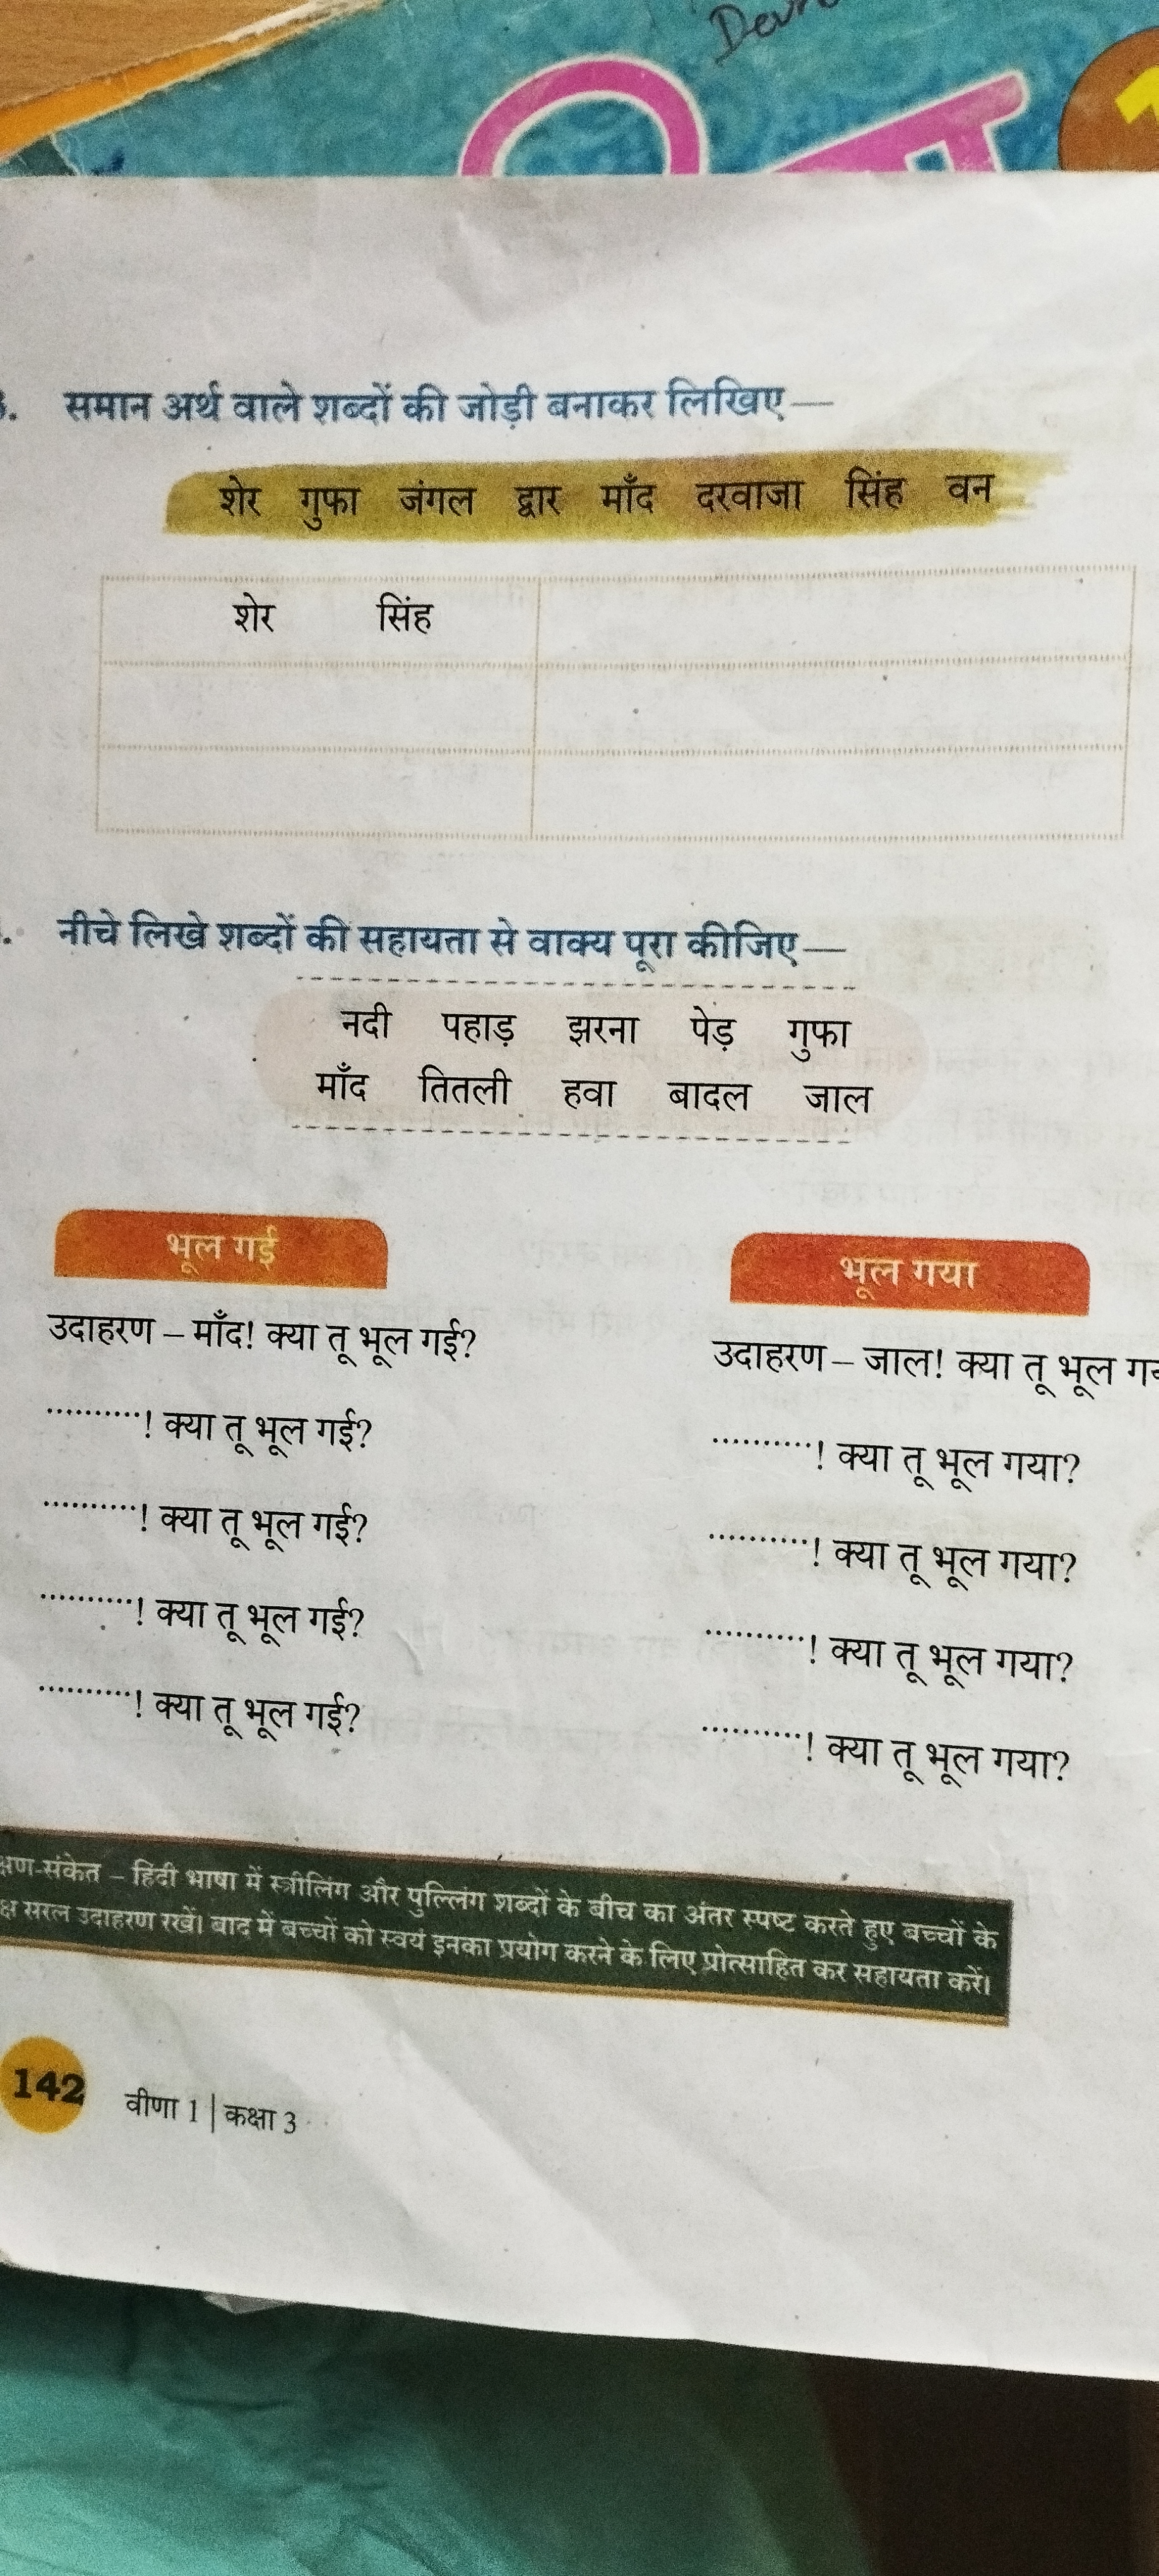 समान अर्थ वाले शब्दों की जोड़ी बनाकर लिखिए—
शेर गुफा जंगल द्वार माँद दरवाजा सिंह वन
शेर सिंह
नीचे लिखे शब्दों की सहायता से वाक्य पूरा कीजिए—
नदी पहाड़ झरना पेड़ गुफा
माँद तितली हवा बादल जाल
भूल गई
उदाहरण – माँद! क्या तू भूल गई?
..........! क्या तू भूल गई?
..........! क्या तू भूल गई?
..........! क्या तू भूल गई?
..........! क्या तू भूल गई?
भूल गया
उदाहरण – जाल! क्या तू भूल
..........! क्या तू भूल गया?
..........! क्या तू भूल गया?
..........! क्या तू भूल गया?
..........! क्या तू भूल गया?
क्षण-संकेत – हिंदी भाषा में स्त्रीलिंग और पुल्लिंग शब्दों के बीच का अंतर स्पष्ट करते हुए बच्चों के
क्ष सरल उदाहरण रखें। बाद में बच्चों को स्वयं इनका प्रयोग करने के लिए प्रोत्साहित कर सहायता करें।
142 वीणा 1 | कक्षा 3